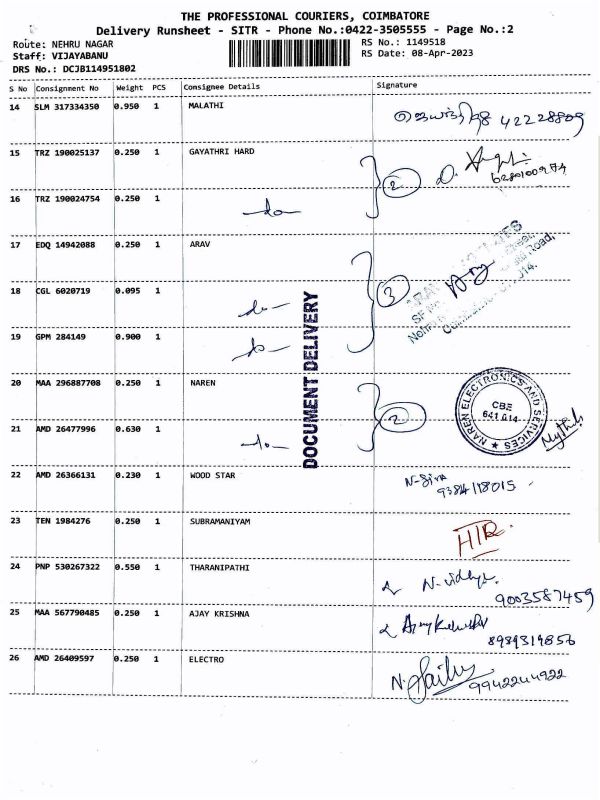 THE PROFESSIONAL COURIERS, COIMBATORE
Delivery Runsheet - SITR - Phone No.:0422-3505555 - Page No.:2
Route: NEHRU NAGAR
RS No.: 1149518
Staff: VIJAYABANU
RS Date: 08-Apr-2023
DRS No.: DCJB114951802
S No Consignment No Weight PCS Consignee Details Signature
14 SLM 317334350 0.950 1 MALATHI
42228809
15 TRZ 190025137 0.250 1 GAYATHRI HARD
2
D.
6280100974
16 TRZ 190024754 0.250 1
do
17 EDQ 14942088 0.250 1 ARAV
18 CGL 6020719 0.095 1
do
3
19 GPM 284149 0.900 1
do
DOCUMENT DELIVERY
20 MAA 296887708 0.250 1 NAREN
2
NAREN ELECTRONICS AND SERVICES
CBE
641 014
21 AMD 26477996 0.630 1
do
22 AMD 26366131 0.230 1 WOOD STAR
N-Siva
9384118015
23 TEN 1984276 0.250 1 SUBRAMANIYAM
24 PNP 530267322 0.550 1 THARANIPATHI
N-vidhya.
9003587459
25 MAA 567790485 0.250 1 AJAY KRISHNA
8989319856
26 AMD 26409597 0.250 1 ELECTRO
N.
9942244922